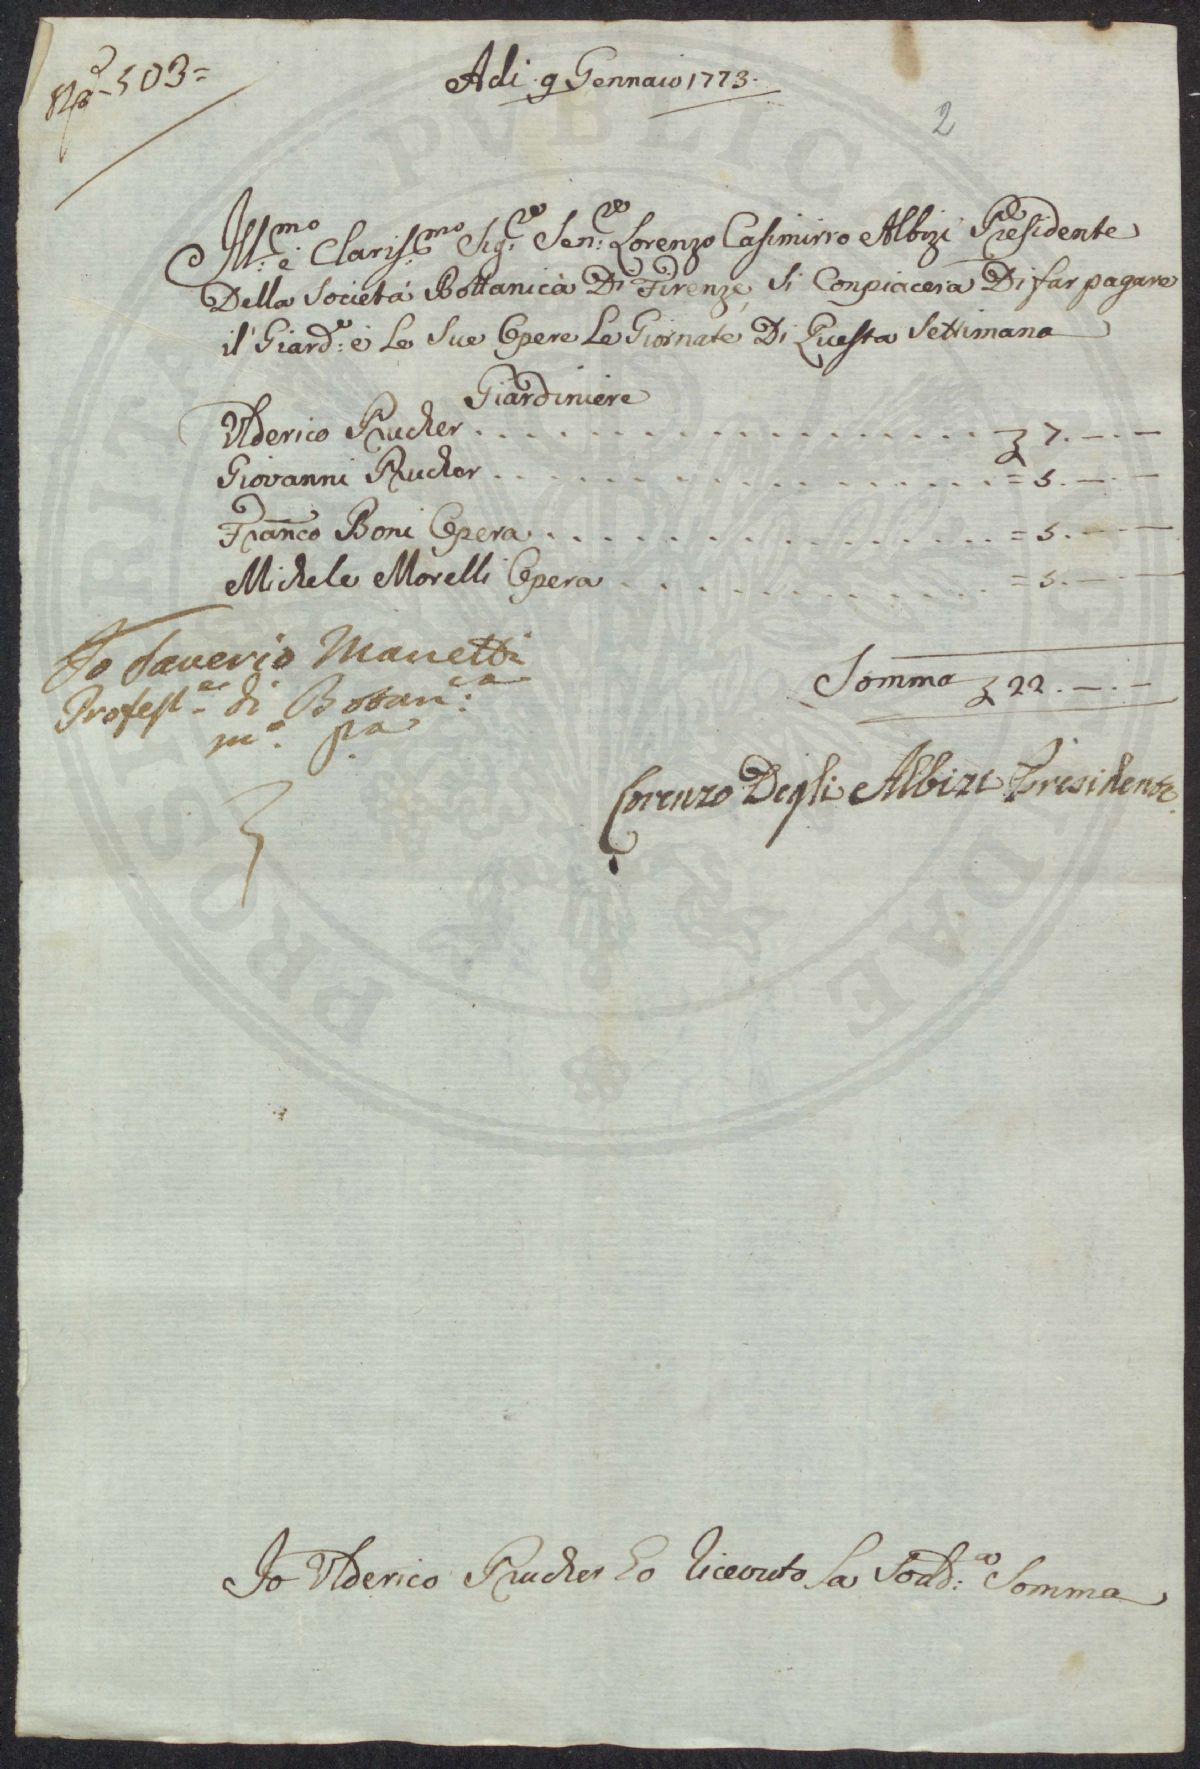 N.º 503=
Adi. 9 Gennaio 1773.
2
Ill:mo e Claris:mo Sig:re Sen:re Lorenzo Casimirro Albizi Presidente
Della Societá Bottanica Di Firenze, Si Conpiacera Di far pagare
il Giard:e e Le Sue Opere Le Giornate Di Questa Settimana
Giardiniere
Ulderico Prucher . . . . . . . . . . . . . . . . . £ 7. — . —
Giovanni Prucher . . . . . . . . . . . . . . . . . = 5. — . —
Franco Boni Opera . . . . . . . . . . . . . . . . = 5. — . —
Michele Morelli Opera . . . . . . . . . . . . . . = 5. — . —
Io Saverio Manetti
Profess:re di Bottan:ca
m:o pa
Somma £ 22. — . —
Lorenzo Degli Albizi Presidente
Io Ulderico Prucher ho ricevuto La Sudd:a Somma
PROSPERITATI PVBLICAE